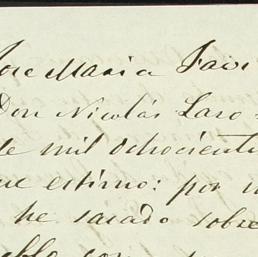 Jose Maria Javi
Don Nicolás Laso
de mil ochociento
que estimo: por
he sacado sobre